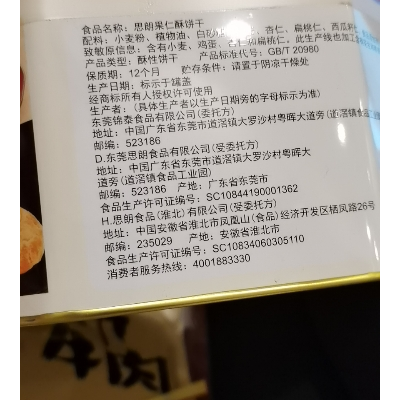 食品名称：思朗果仁酥饼干
配料：小麦粉、植物油、白砂糖、杏仁、扁桃仁、西瓜籽
致敏原信息：含有小麦、鸡蛋、杏仁和扁桃仁，此生产线也加工
产品类型：酥性饼干 产品标准代号：GB/T 20980
保质期：12个月 贮存条件：请置于阴凉干燥处
生产日期：标示于罐盖
经商标所有人授权许可使用
生产者：（具体生产者以生产日期旁的字母标示为准）
东莞锦泰食品有限公司(委托方)
地址：中国广东省东莞市道滘镇大罗沙村粤晖大道旁(道滘镇食品工业园)
邮编：523186
D.东莞思朗食品有限公司(受委托方)
地址：中国广东省东莞市道滘镇大罗沙村粤晖大
道旁(道滘镇食品工业园)
邮编：523186 产地：广东省东莞市
食品生产许可证编号：SC10844190001362
H.思朗食品(淮北)有限公司(受委托方)
地址：中国安徽省淮北市凤凰山(食品)经济开发区栖凤路26号
邮编：235029 产地：安徽省淮北市
食品生产许可证编号：SC10834060305110
消费者服务热线：4001883330
牛肉